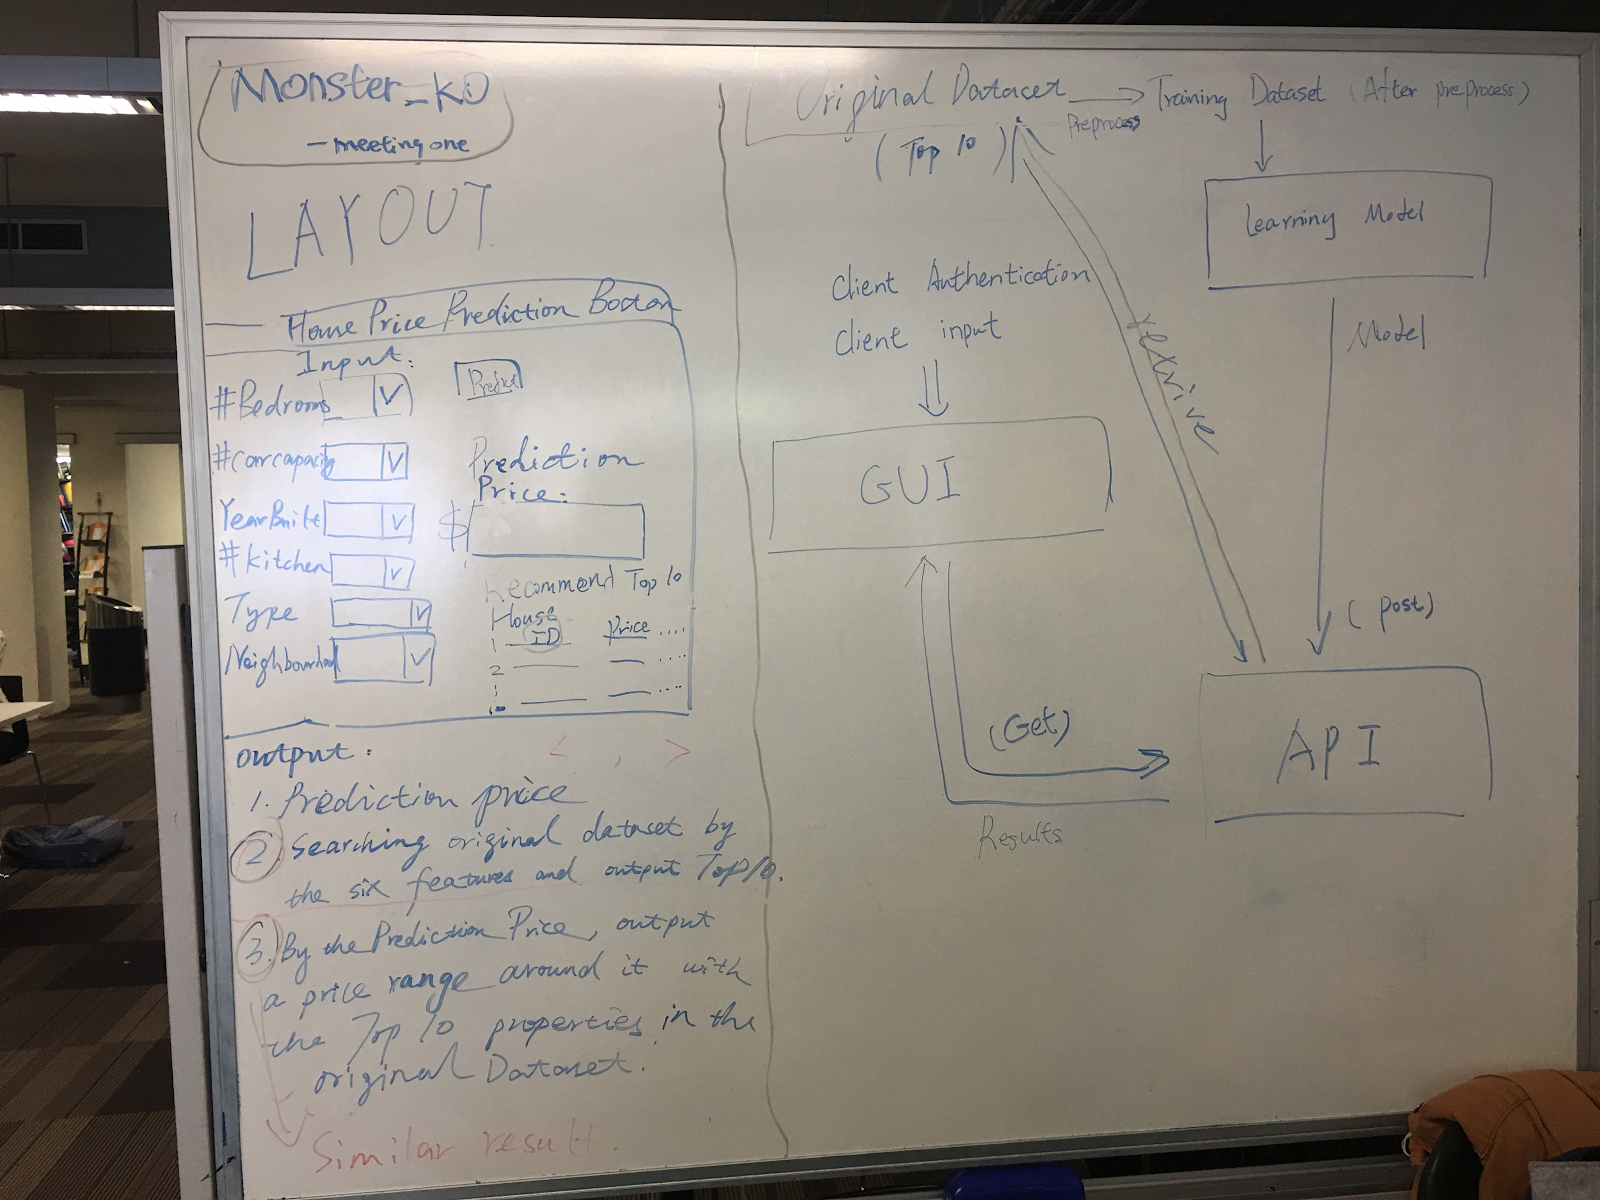 Monster_KO
- meeting one
LAYOUT
Home Price Prediction Boston
Input:
#Bedrooms V
Predict
#carcapacity V
YearBuilt V
#kitchen V
Type V
Neighbourhood V
Prediction
Price:
$
Recommend Top 10
House
ID Price ....
1
2 ....
10 ....
output:
< , >
1. Prediction price
2. Searching original dataset by
the six features and output Top 10.
3. By the Prediction Price, output
a price range around it with
the Top 10 properties in the
original Dataset.
Similar result.
Original Dataset → Training Dataset (After preprocess)
Preprocess
(Top 10)
Learning Model
Client Authentication
Client input
retrive
Model
GUI
(post)
(Get)
API
Results